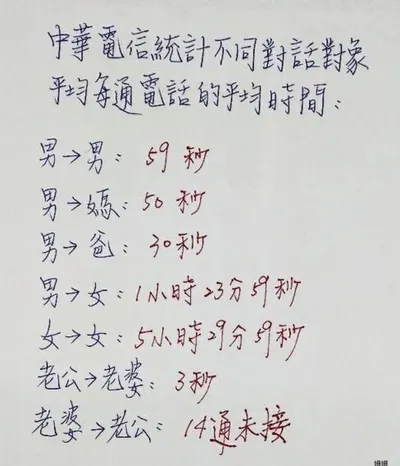 中華電信統計不同對話對象
平均每通電話的平均時間：
男→男：59秒
男→媽：50秒
男→爸：30秒
男→女：1小時23分59秒
女→女：5小時29分59秒
老公→老婆：3秒
老婆→老公：14通未接